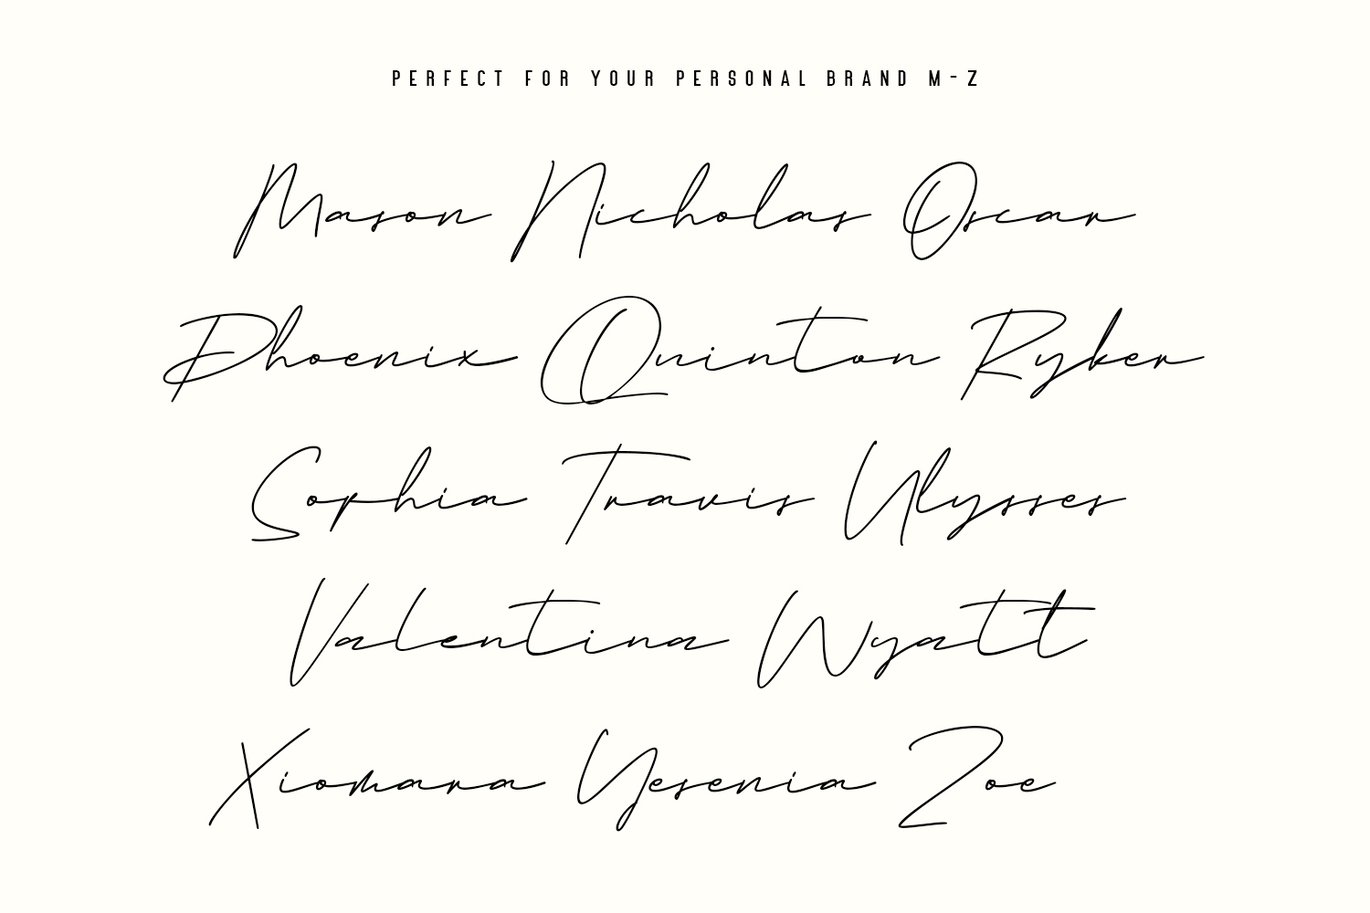 PERFECT FOR YOUR PERSONAL BRAND M-Z
Mason Nicholas Oscar
Phoenix Quinton Ryker
Sophia Travis Ulysses
Valentina Wyatt
Xiomara Yesenia Zoe